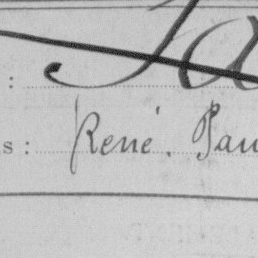 :
s : René. Pau